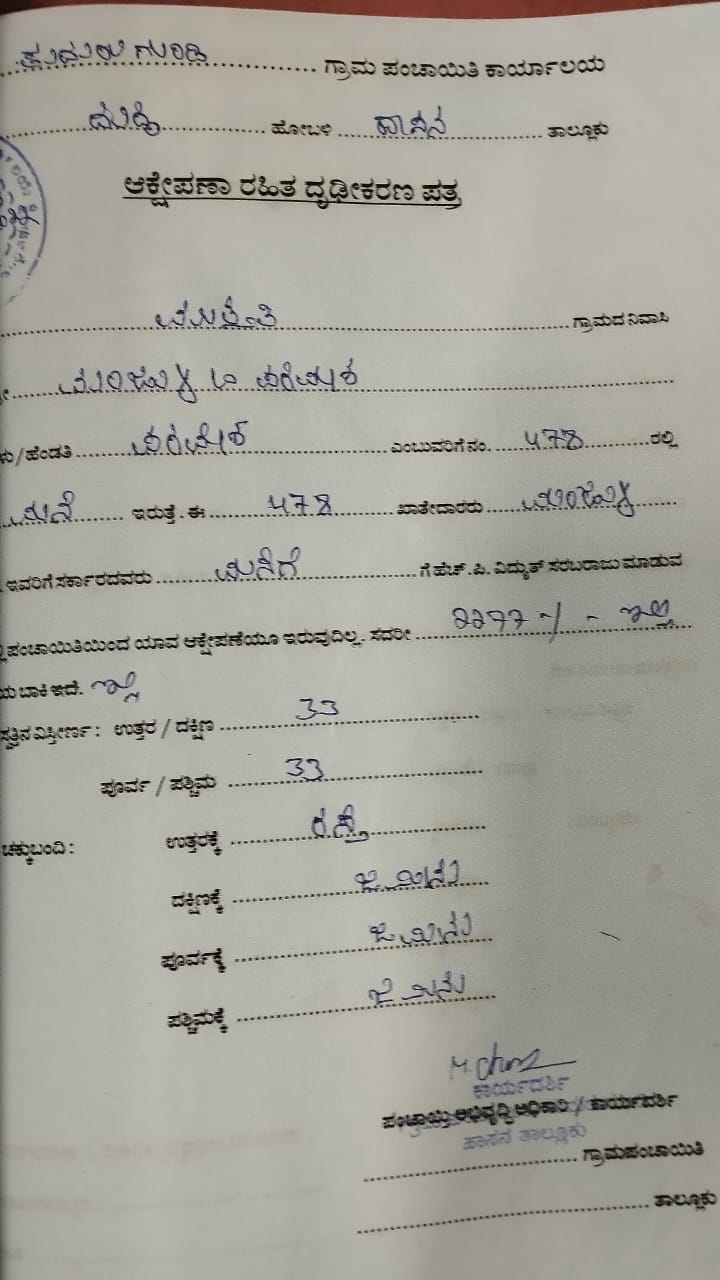 ಗ್ರಾಮ ಪಂಚಾಯಿತಿ ಕಾರ್ಯಾಲಯ
ಹೋಬಳಿ ಹಾಸನ ತಾಲ್ಲೂಕು
ಆಕ್ಷೇಪಣಾ ರಹಿತ ದೃಢೀಕರಣ ಪತ್ರ
ಗ್ರಾಮದ ನಿವಾಸಿ
ಮಂಜುಳ
/ಹೆಂಡತಿ ಎಂಬುವರಿಗೆ ನಂ. 478 ರಲ್ಲಿ
ಮನೆ ಇರುತ್ತೆ. ಈ 478 ಖಾತೇದಾರರು ಮಂಜುಳ
ಇವರಿಗೆ ಸರ್ಕಾರದವರು ಮನೆಗೆ ಗೆ ಹೆಚ್.ಪಿ. ವಿದ್ಯುತ್ ಸರಬರಾಜು ಮಾಡುವ
ಪಂಚಾಯಿತಿಯಿಂದ ಯಾವ ಆಕ್ಷೇಪಣೆಯೂ ಇರುವುದಿಲ್ಲ. ಸದರೀ ಇಲ್ಲ
ಬಾಕಿ ಇದೆ. ಇಲ್ಲ
ಸ್ವತ್ತಿನ ವಿಸ್ತೀರ್ಣ : ಉತ್ತರ / ದಕ್ಷಿಣ 33
ಪೂರ್ವ / ಪಶ್ಚಿಮ 33
ಚಕ್ಕುಬಂದಿ : ಉತ್ತರಕ್ಕೆ ರಸ್ತೆ
ದಕ್ಷಿಣಕ್ಕೆ ಜಮೀನು
ಪೂರ್ವಕ್ಕೆ ಜಮೀನು
ಪಶ್ಚಿಮಕ್ಕೆ ಜಮೀನು
ಕಾರ್ಯದರ್ಶಿ
ಪಂಚಾಯ್ತಿ ಅಭಿವೃದ್ಧಿ ಅಧಿಕಾರಿ / ಕಾರ್ಯದರ್ಶಿ
ಹಾಸನ ತಾಲ್ಲೂಕು
ಗ್ರಾಮಪಂಚಾಯಿತಿ
ತಾಲ್ಲೂಕು